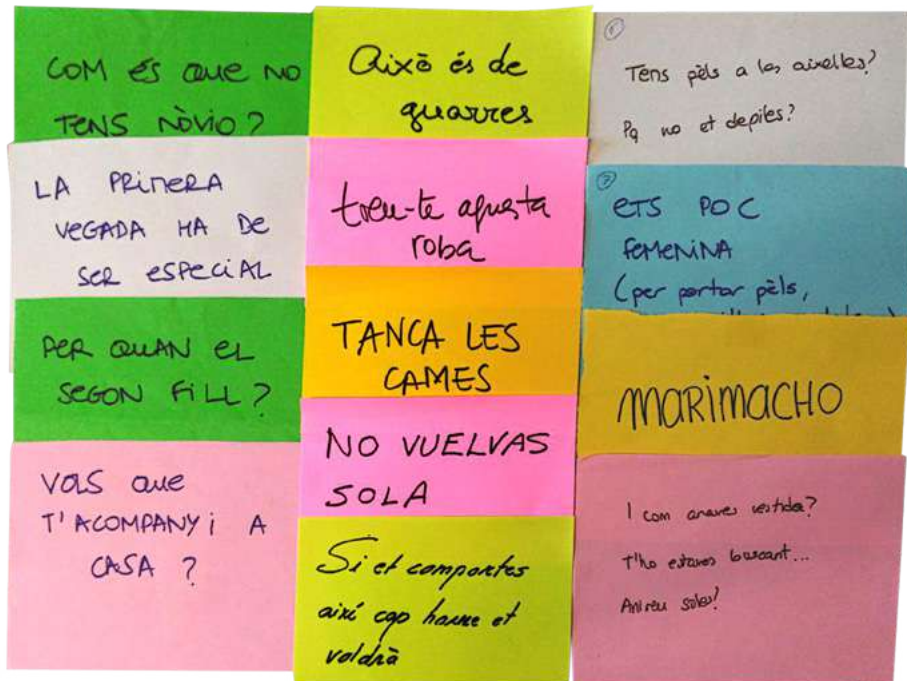 COM és QUE NO
TENS NÒVIO?
LA PRIMERA
VEGADA HA DE
SER ESPECIAL
PER QUAN EL
SEGON FILL?
VOLS QUE
T'ACOMPANYI A
CASA ?
Això és de
guarres
treu-te aquesta
roba
TANCA LES
CAMES
NO VUELVAS
SOLA
Si et comportes
així cap home et
voldrà
Tens pèls a les aixelles?
Pq no et depiles?
ETS POC
FEMENINA
(per portar pèls,
MARIMACHO
I com anaves vestida?
T'ho estaves buscant...
Anireu soles?